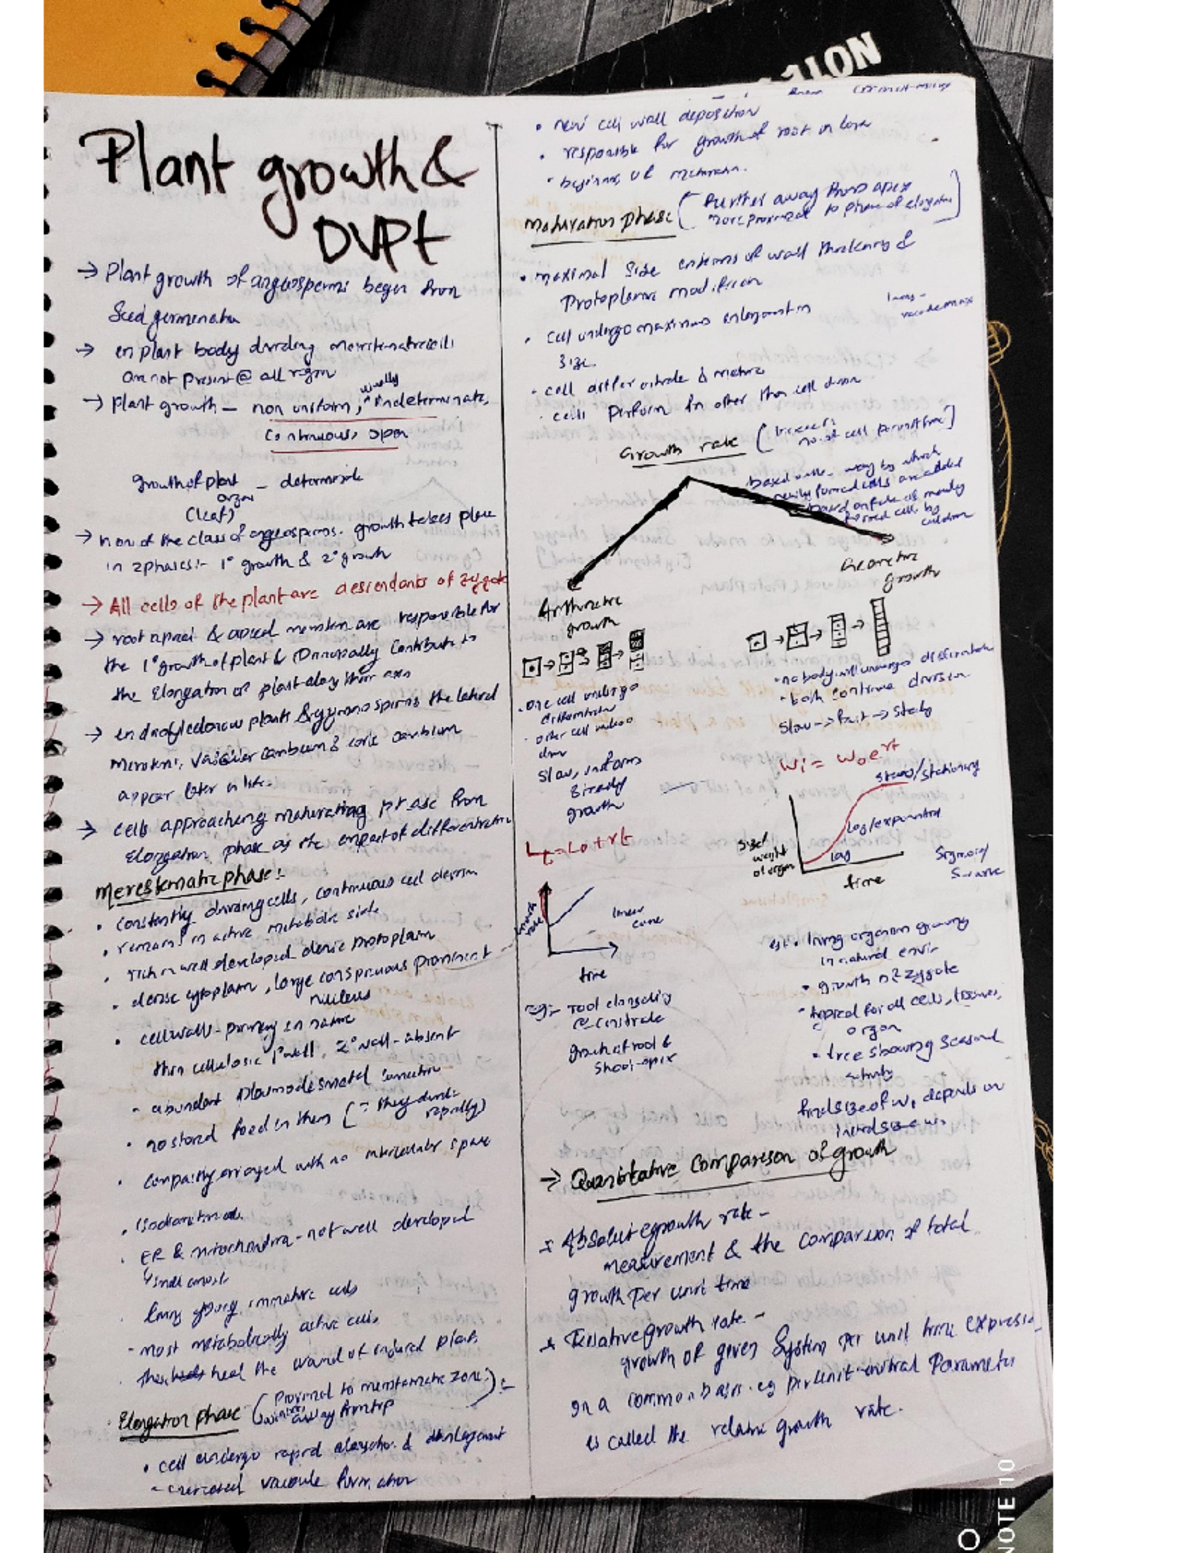 Plant growth &
DVPt
→ Plant growth of angiosperms began from
Seed germination
→ in plant body dividing meristematic cells
are not present @ all region
→ Plant growth - non uniform, usually indeterminate,
Continuous, open
Growth of plant organ - determinate
(leaf)
→ in of the class of angiosperms. growth takes place
in 2 phases:- 1° growth & 2° growth
→ All cells of the plant are descendants of zygote
→ root apical & apical meristem are responsible for
the 1° growth of plant & principally contribute to
the Elongation of plant along their axis
→ in dicotyledonous plants & gymnosperms the lateral
meristem, vascular cambium & cork cambium
appear later in life.
→ cells approaching maturating phase from
Elongation phase as the of differentiation
Meristematic phase:
• constantly dividing cells, continuous cell division
• remains in active metabolic state
• rich in well developed dense protoplasm
• dense cytoplasm, large conspicuous prominent
nucleus
• cell walls - primary in nature
thin cellulosic 1° wall, 2° wall - absent
- abundant Plasmodesmatal connection
• no stored food in them (∵ they divide
rapidly)
• compactly arranged with no intercellular space
• Isodiametric
• ER & mitochondria - not well developed
• living young immature cells
- most metabolically active cells
• heal the wound of injured plants
Elongation phase (Proximal to meristematic zone,
away from tip) :-
• cell undergo rapid elongation & enlargement
- increased vacuole formation
• new cell wall deposition
• responsible for growth of root in
• beginning of
Maturation phase (Further away from apex
more proximal to phase of elongation)
• maximal size in terms of wall thickening &
Protoplasmic modification
• Cell undergo maximum enlargement in
size
• cell differentiate & mature
• cells perform fn other than cell division
Growth rate [Increase in
no. of cell per unit time]
based on the way by which
newly formed cells are added
based on fate of newly
formed cells by
Arithmetic
growth
Geometric
growth
• One cell undergo
differentiation
• other cell
Slow, uniform
steady
growth
Lt = L0 + rt
Growth
rate
linear
curve
time
eg:- root elongating
@ constant rate
growth of root &
shoot apex
• nobody will undergo differentiation
• both continue division
Slow → fast → steady
W1 = W0 e^rt
steady/stationary
log/exponential
lag
Size/
weight
of organ
time
Sigmoid/
S-curve
• living organism growing
in natural envir
• growth of zygote
• typical for all cells, tissues,
organ
• tree showing seasonal
activity
final size of W1 depends on
initial size W0
→ Quantitative Comparison of growth
* Absolute growth rate -
measurement & the comparison of total
growth per unit time
* Relative growth rate -
growth of given System per unit time expressed
on a common basis. eg per unit initial Parameter
is called the relative growth rate.
NOTE 10